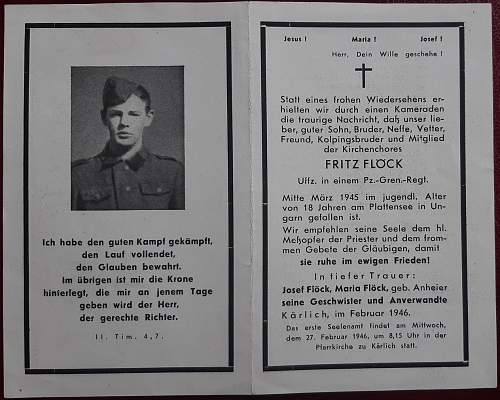 Ich habe den guten Kampf gekämpft,
den Lauf vollendet,
den Glauben bewahrt.
Im übrigen ist mir die Krone
hinterlegt, die mir an jenem Tage
geben wird der Herr,
der gerechte Richter.
II. Tim. 4,7.
Jesus! Maria! Josef!
Herr, Dein Wille geschehe!
Statt eines frohen Wiedersehens er-
hielten wir durch einen Kameraden
die traurige Nachricht, daß unser lie-
ber, guter Sohn, Bruder, Neffe, Vetter,
Freund, Kolpingsbruder und Mitglied
der Kirchenchores
FRITZ FLÖCK
Uffz. in einem Pz.-Gren.-Regt.
Mitte März 1945 im jugendl. Alter
von 18 Jahren am Plattensee in Un-
garn gefallen ist.
Wir empfehlen seine Seele dem hl.
Meßopfer der Priester und dem from-
men Gebete der Gläubigen, damit
sie ruhe im ewigen Frieden!
In tiefer Trauer:
Josef Flöck, Maria Flöck, geb. Anheier
seine Geschwister und Anverwandte
Kärlich, im Februar 1946.
Das erste Seelenamt findet am Mittwoch,
dem 27. Februar 1946, um 8,15 Uhr in der
Pfarrkirche zu Kärlich statt.